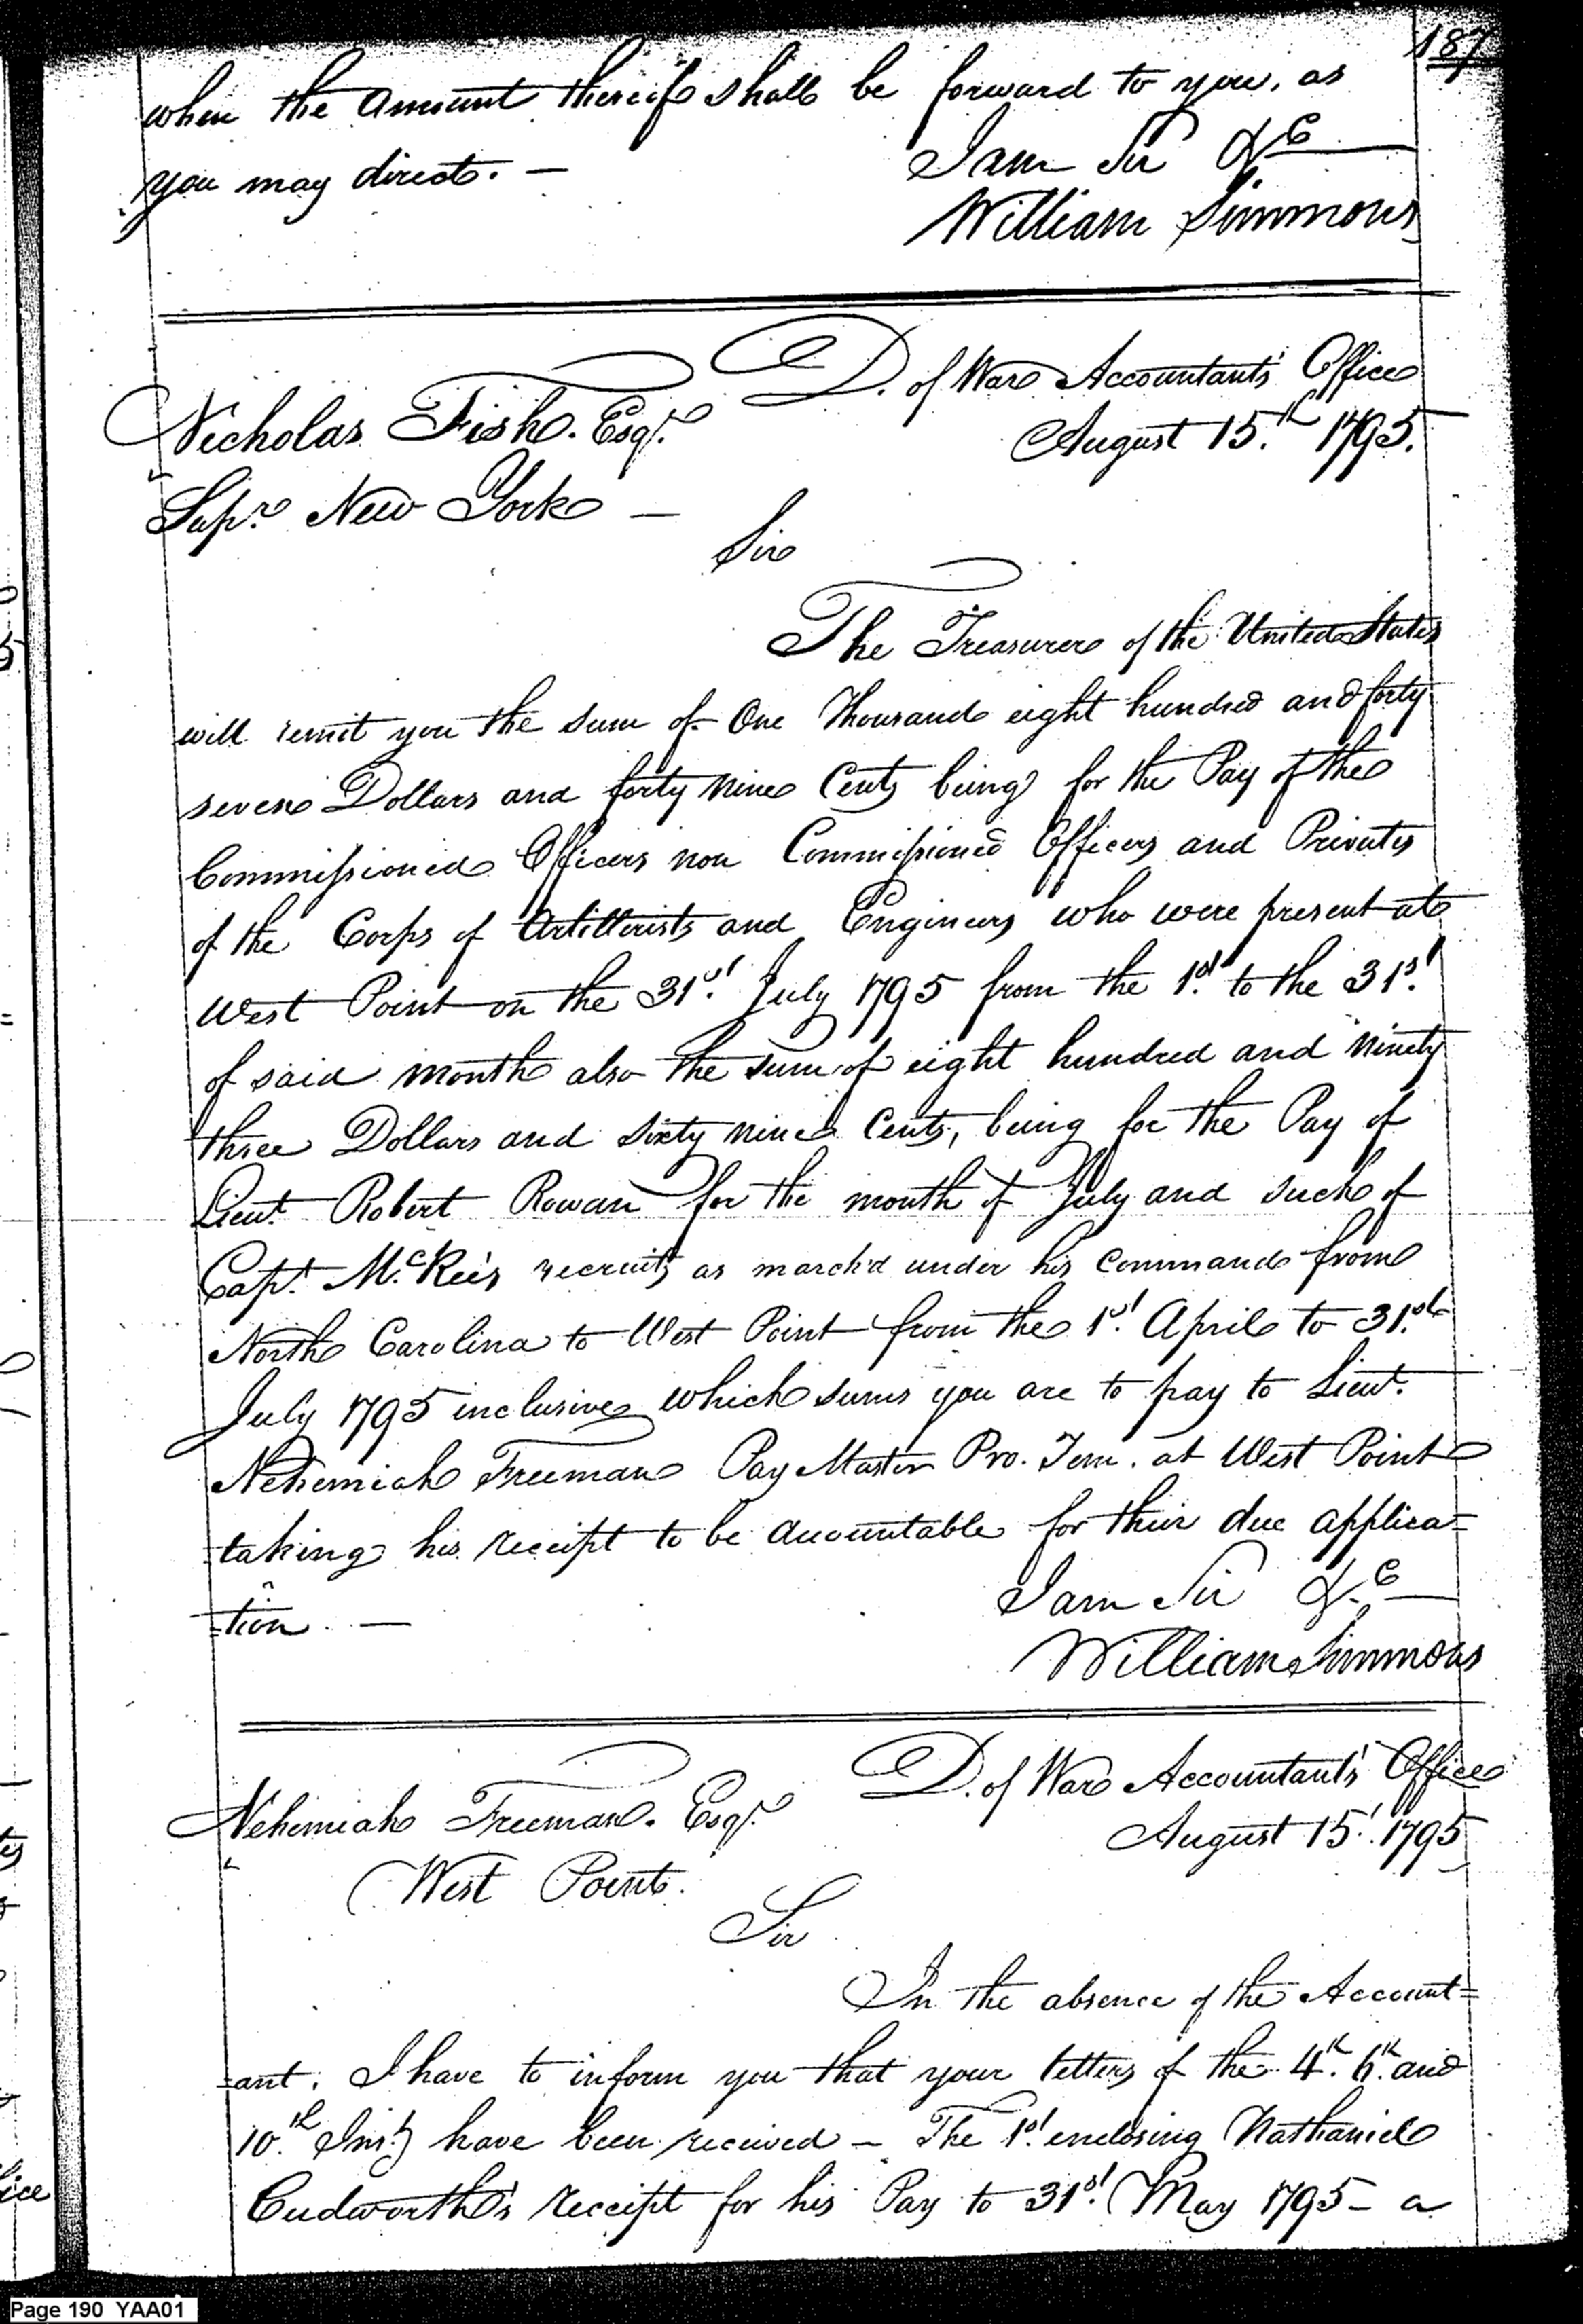 187
when the amount thereof shall be forward to you, as
you may direct. —
I am Sir &c
William Simmons
D. of War Accountant's Office
Nicholas Fish. Esqr.
August 15.th 1795.
Supr. New York —
Sir
The Treasurer of the United States
will remit you the sum of One Thousand eight hundred and forty
seven Dollars and forty nine Cents being for the Pay of the
Commissioned Officers non Commissioned Officers and Privates
of the Corps of Artillerists and Engineers who were present at
West Point on the 31st. July 1795 from the 1st. to the 31st.
of said month also the sum of eight hundred and ninety
three Dollars and sixty nine Cents, being for the Pay of
Lieut. Robert Rowan for the month of July and such of
Capt. McRee's recruits as march'd under his Command from
North Carolina to West Point from the 1st. April to 31st.
July 1795 inclusive which sums you are to pay to Lieut.
Nehemiah Freeman Pay Master Pro. Tem. at West Point
taking his receipt to be accountable for their due applica=
=tion. —
I am Sir &c
William Simmons
D. of War Accountant's Office
Nehemiah Freeman. Esqr.
August 15t. 1795
West Point.
Sir
In the absence of the Account=
=ant. I have to inform you that your letters of the 4th. 6th. and
10.th Inst. have been received — The 1st. enclosing Nathaniel
Cudworth's receipt for his Pay to 31st. May 1795 — a
Page 190 YAA01